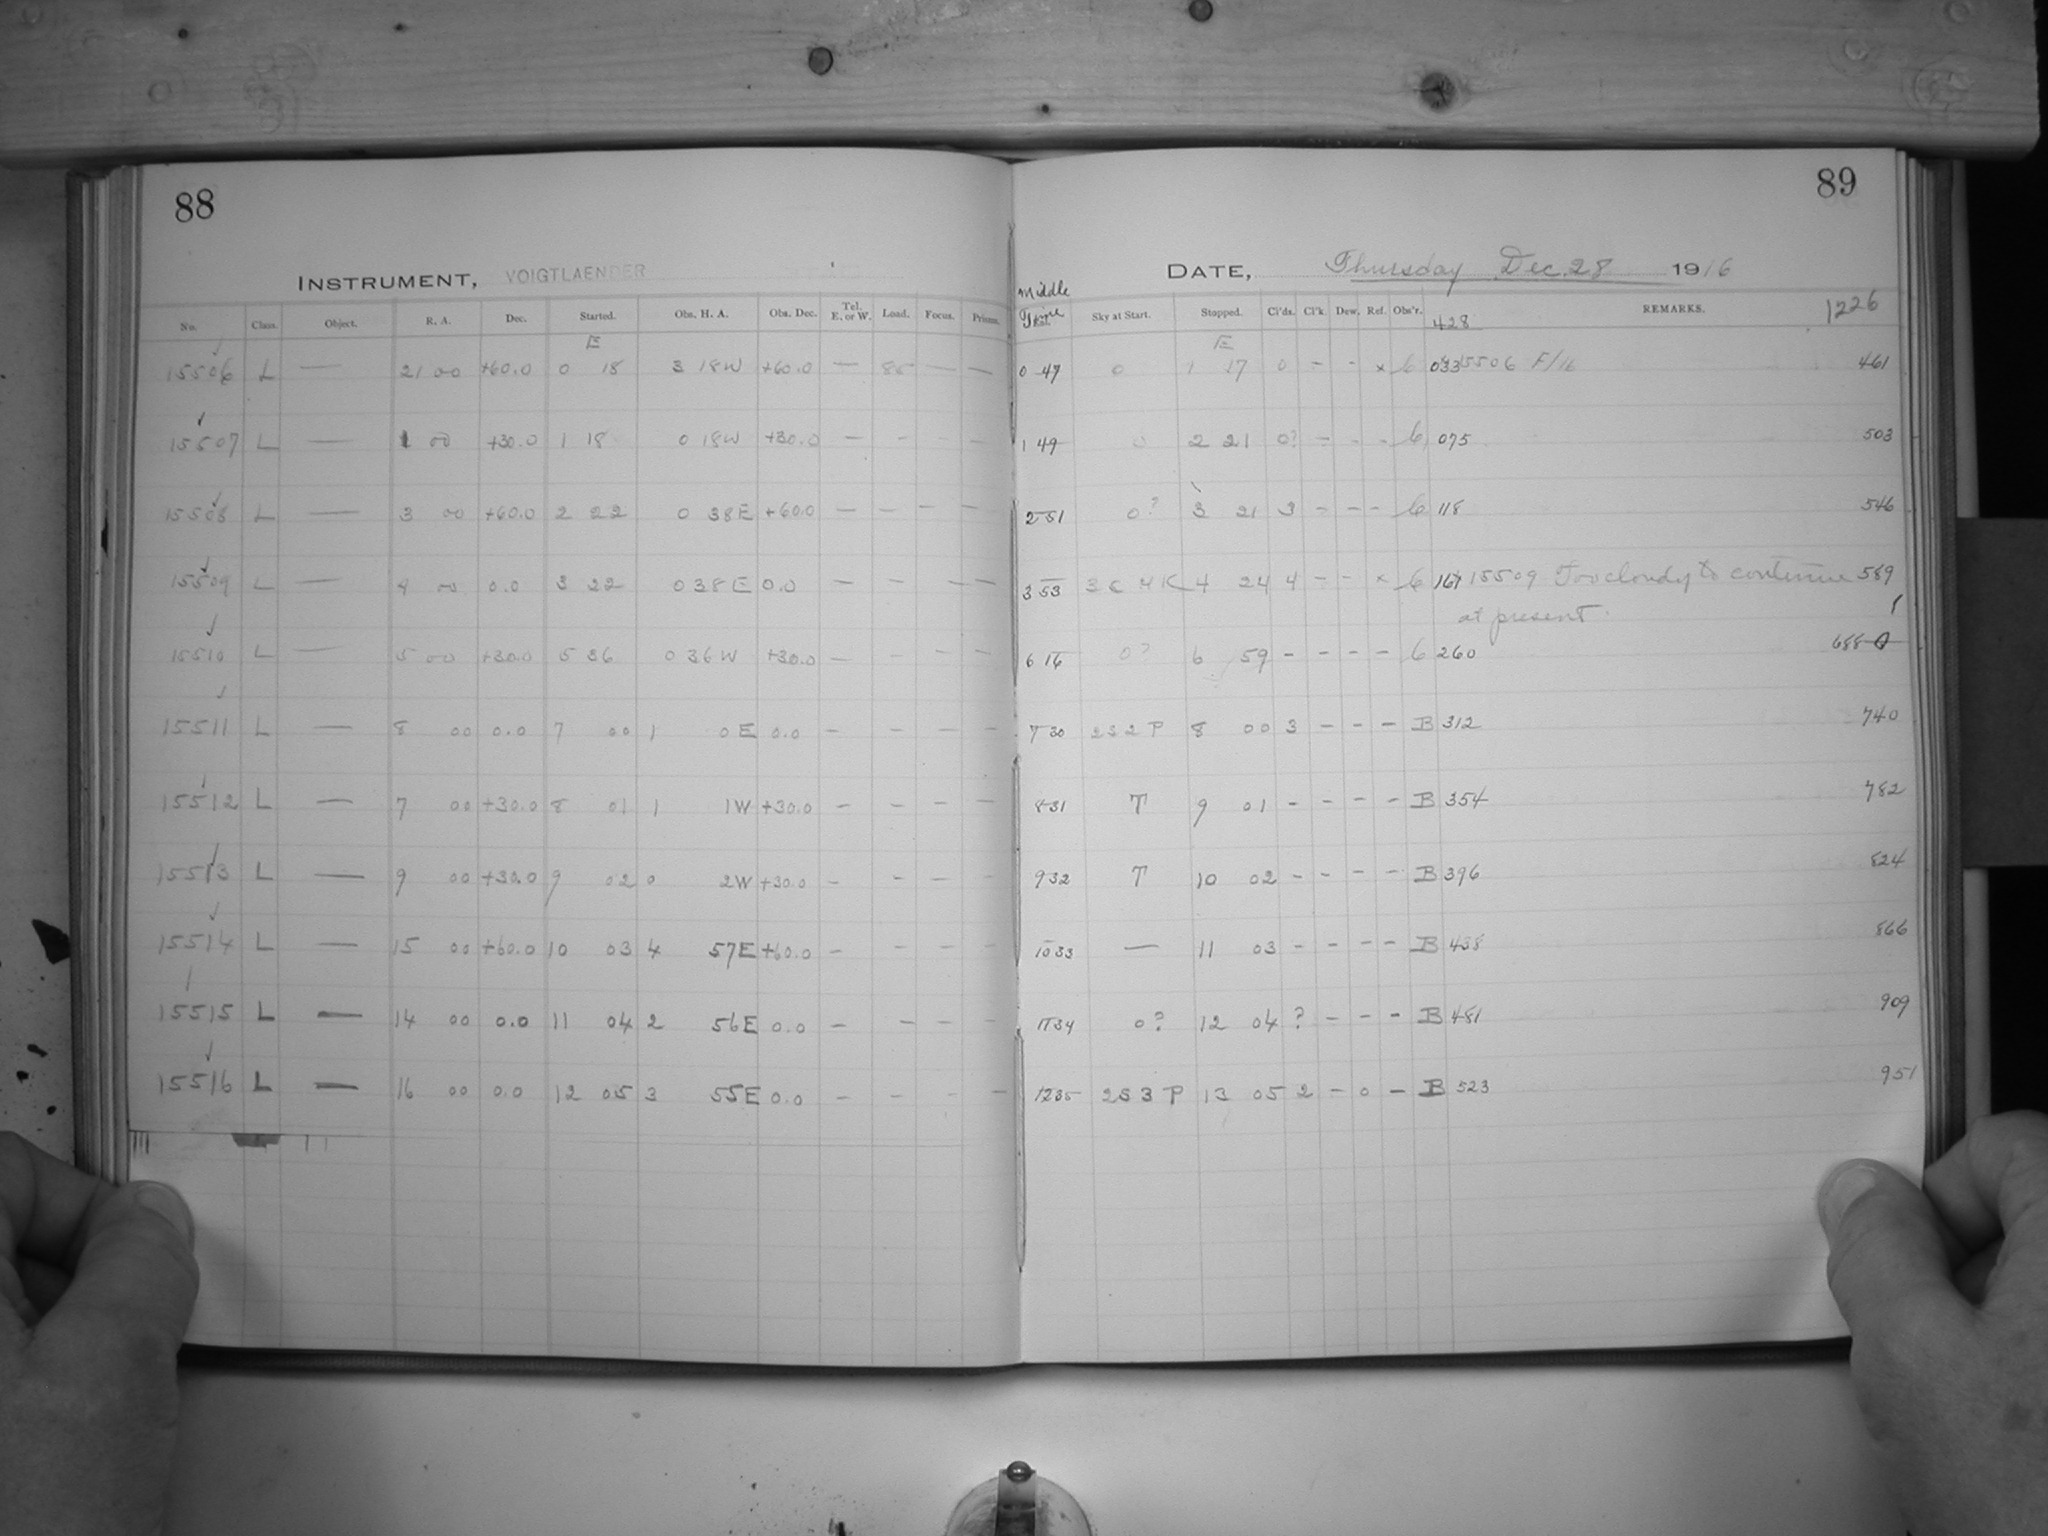 88
INSTRUMENT, VOIGTLAENDER
No. Class. Object. R. A. Dec. Started. Obs. H. A. Obs. Dec. Tel. E. or W. Load. Focus. Prisms.
E
15506 L — 21 00 +60.0 0 18 3 18W +60.0 — — —
15507 L — 1 00 +30.0 1 18 0 18W +30.0 — - - -
15508 L — 3 00 +60.0 2 22 0 38E +60.0 — — — —
15509 L — 4 00 0.0 3 22 0 38E 0.0 — — — —
15510 L — 5 00 +30.0 5 36 0 36W +30.0 — — — —
15511 L — 8 00 0.0 7 00 1 0E 0.0 - - - -
15512 L — 7 00 +30.0 8 01 1 1W +30.0 - - - -
15513 L — 9 00 +30.0 9 02 0 2W +30.0 - - - -
15514 L — 15 00 +60.0 10 03 4 57E +60.0 - - - -
15515 L — 14 00 0.0 11 04 2 56E 0.0 - - - -
15516 L — 16 00 0.0 12 05 3 55E 0.0 - - - -
89
DATE, Thursday Dec. 28 1916
Middle
Time Sky at Start. Stopped. Cl'ds. Cl'k. Dew. Ref. Obs'r. 428 REMARKS. 1226
E
0 47 0 1 17 0 - - × 6 033 15506 F/16 461
1 49 0 2 21 0? - - - 6 075 503
2 51 0? 3 21 3 - - - 6 118 546
3 53 3 C H K 4 24 4 - - × 6 161 15509 Too cloudy to continue 589
at present.
6 16 0? 6 59 - - - - 6 260 688
7 30 2S2P 8 00 3 - - - B 312 740
8 31 T 9 01 - - - - B 354 782
9 32 T 10 02 - - - - B 396 824
10 33 — 11 03 - - - - B 438 866
11 34 0? 12 04 ? - - - B 481 909
12 35 2S3P 13 05 2 - 0 - B 523 951